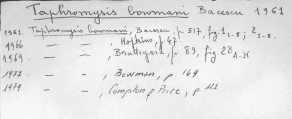 Taphromysis bowmani Bacescu 1961
1961. Taphromysis bowmani, Bacescu, p. 517, fig 1 2-8; 2
1966 — — , Hopkins, p. 47
1969 — — , Brattegard, p. 89, fig 28 A-H
1977 — — , Bowman, p. 169
1979 — — , Compton & Price, p.